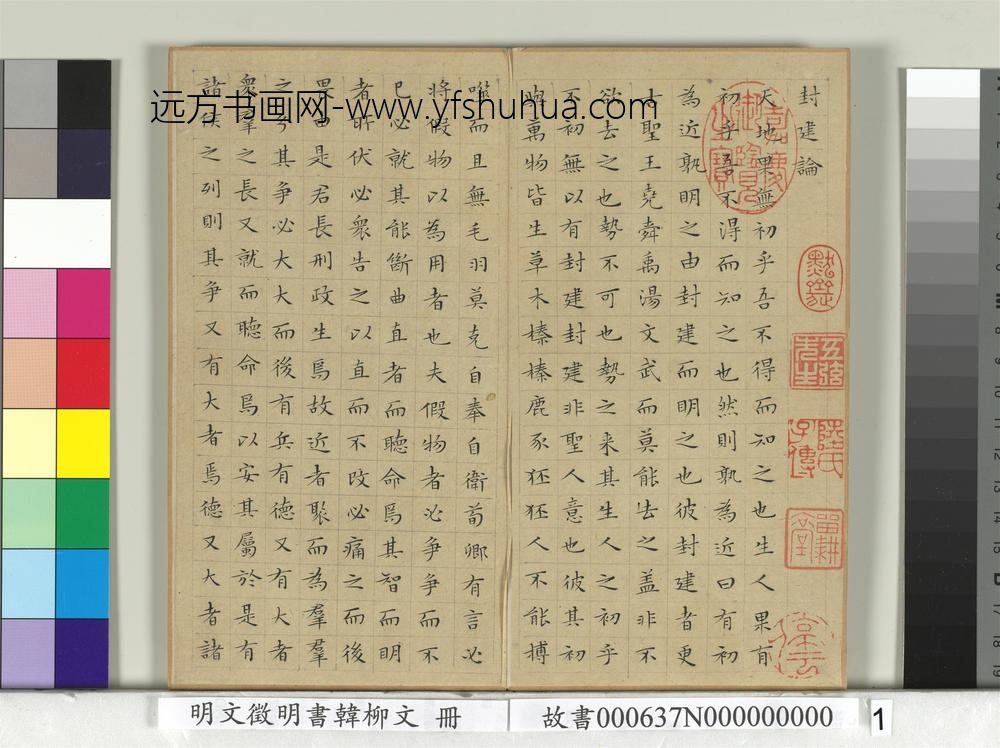 封建論
天地果無初乎吾不得而知之也生人果有
初乎吾不得而知之也然則孰為近曰有初
為近孰明之由封建而明之也彼封建者更
古聖王堯舜禹湯文武而莫能去之蓋非不
欲去之也勢不可也勢之来其生人之初乎
不初無以有封建封建非聖人意也彼其初
與萬物皆生草木榛榛鹿豕狉狉人不能搏
噬而且無毛羽莫克自奉自衛荀卿有言必
將假物以為用者也夫假物者必争争而不
已必就其能斷曲直者而聽命焉其智而明
者所伏必衆告之以直而不改必痛之而後
畏由是君長刑政生焉故近者聚而為羣羣
之分其争必大大而後有兵有德又有大者
衆羣之長又就而聽命焉以安其屬於是有
諸侯之列則其争又有大者焉德又大者諸
嘉慶御覽之寶
陸氏子傳
远方书画网-www.yfshuhua.com
明文徵明書韓柳文 冊
故書000637N000000000
1